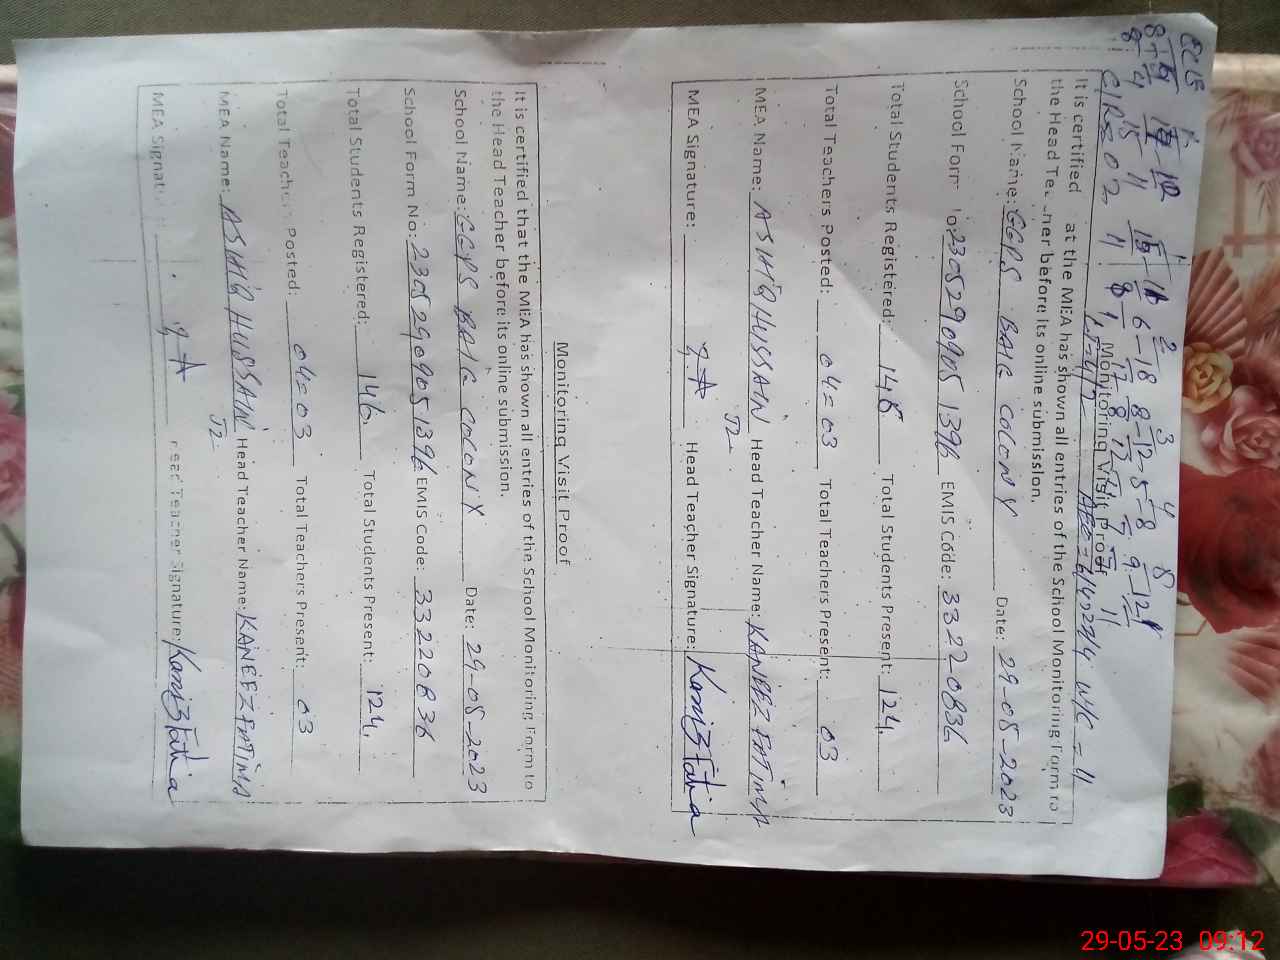 Monitoring Visit Proof
It is certified at the MEA has shown all entries of the School Monitoring Form to
the Head Te ner before its online submission.
School Name: GGPS BAIG COLONY Date: 29-05-2023
School Form No: 23052909051396 EMIS Code: 33220836
Total Students Registered: 146 Total Students Present: 124
Total Teachers Posted: 04=03 Total Teachers Present: 03
MEA Name: ASHIQ HUSSAIN Head Teacher Name: KANEEZ FATIMA
MEA Signature: Head Teacher Signature:
Monitoring Visit Proof
It is certified that the MEA has shown all entries of the School Monitoring Form to
the Head Teacher before its online submission.
School Name: GGPS BAIG COLONY Date: 29-05-2023
School Form No: 23052909051396 EMIS Code: 33220836
Total Students Registered: 146 Total Students Present: 124
Total Teachers Posted: 04=03 Total Teachers Present: 03
MEA Name: ASHIQ HUSSAIN Head Teacher Name: KANEEZ FATIMA
MEA Signatu Head Teacher Signature:
29-05-23 09:12